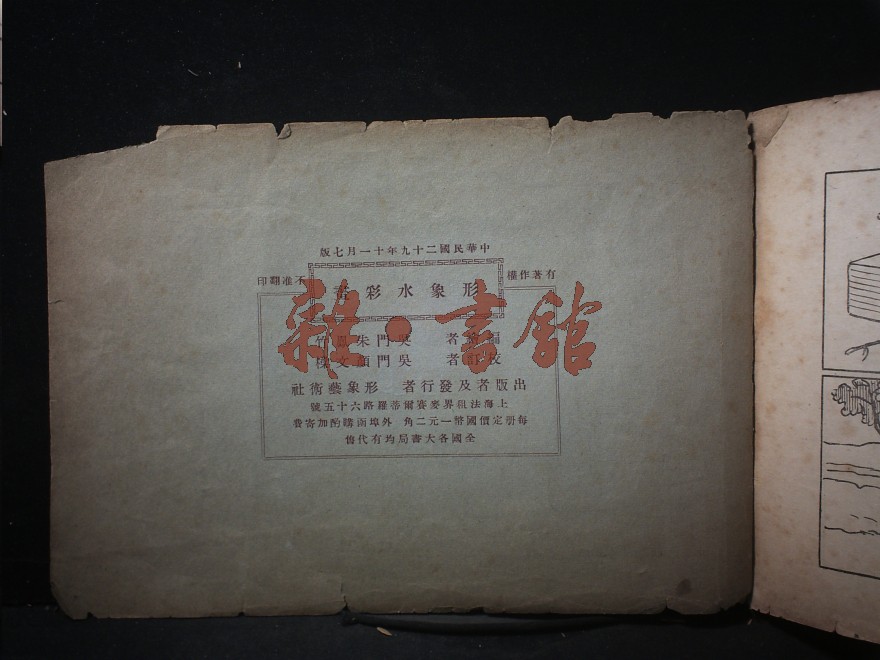 中華民國二十九年十一月七版
有著作權
不准翻印
形象水彩畫
者 吳門朱鳳竹
校訂者 吳門顏文樑
出版者及發行者 形象藝術社
上海法租界麥賽爾蒂羅路六十五號
每册定價國幣一元二角 外埠函購酌加寄費
全國各大書局均有代售
雜·書館